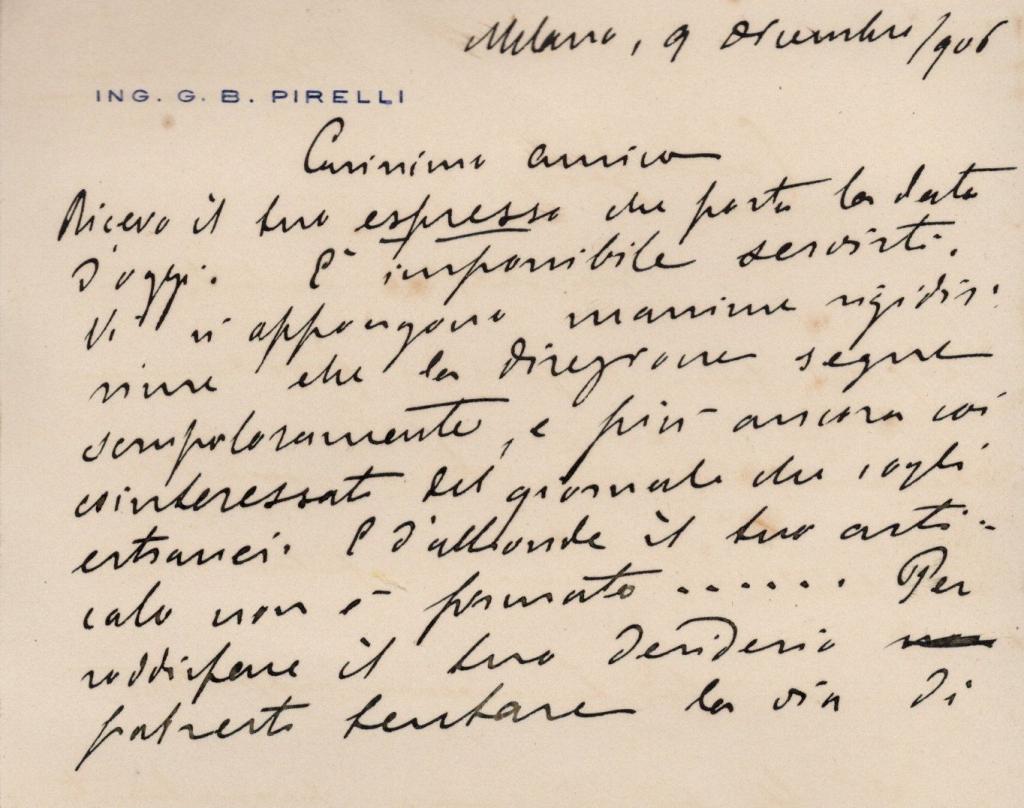 Milano, 9 dicembre/906
ING. G. B. PIRELLI
Carissimo amico
Ricevo il tuo espresso che porta la data
d'oggi. È impossibile servirti.
Vi si oppongono massime rigidis-
sime che la direzione segue
scrupolosamente, e più ancora coi
cointeressati del giornale che cogli
estranei. E d'altronde il tuo arti-
colo non è firmato ...... Per
soddisfare il tuo desiderio
potresti tentare la via di